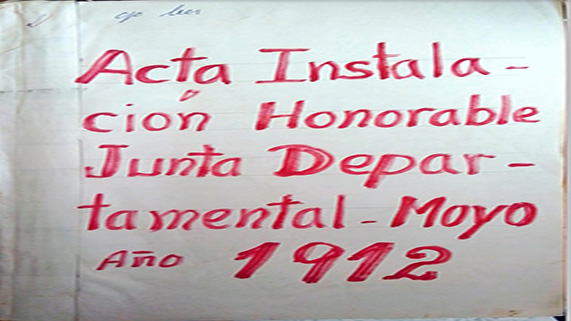 Acta Instala-
ción Honorable
Junta Depar-
tamental - Moyo
Año 1912